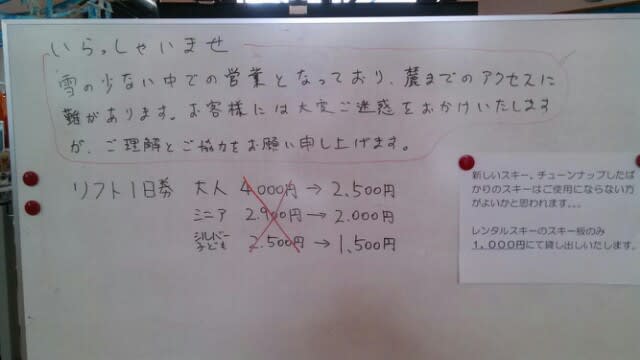 いらっしゃいませ
雪の少ない中での営業となっており、麓までのアクセスに
難があります。お客様には大変ご迷惑をおかけいたします
が、ご理解とご協力をお願い申し上げます。
リフト1日券 大人 4,000円→2,500円
ミニア 2.900円→2.000円
シルバー
子ども 2.500円→1,500円
新しいスキー、チューンナップしたば
かりのスキーはご使用にならない方
がよいかと思われます。。。
レンタルスキーのスキー板のみ
1,000円にて貸し出しいたします。